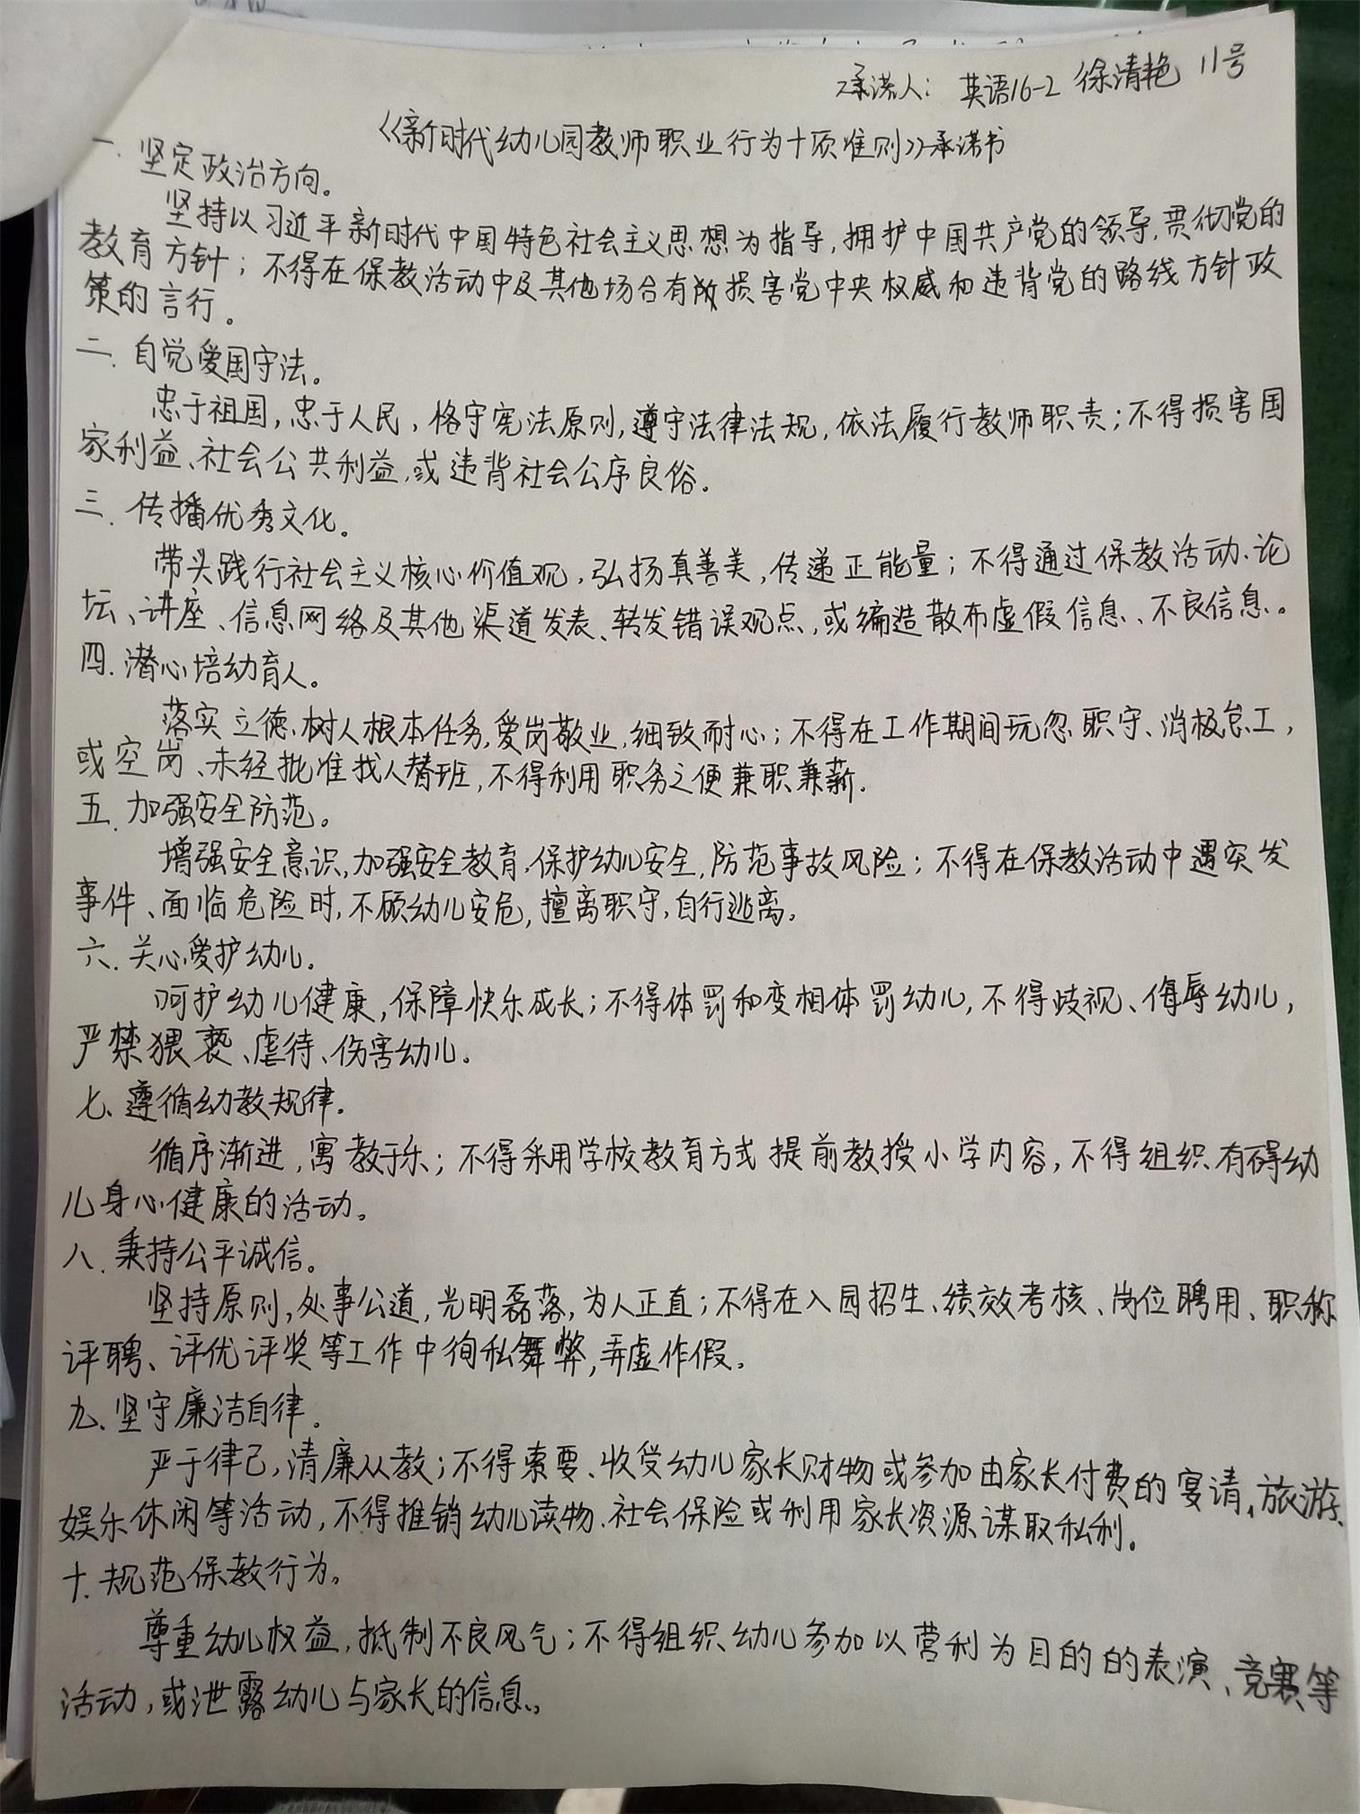 承诺人：英语16-2 徐清艳 11号
《新时代幼儿园教师职业行为十项准则》承诺书
一.坚定政治方向。
坚持以习近平新时代中国特色社会主义思想为指导,拥护中国共产党的领导,贯彻党的
教育方针；不得在保教活动中及其他场合有损害党中央权威和违背党的路线方针政
策的言行。
二.自觉爱国守法。
忠于祖国,忠于人民,恪守宪法原则,遵守法律法规,依法履行教师职责；不得损害国
家利益、社会公共利益,或违背社会公序良俗。
三.传播优秀文化。
带头践行社会主义核心价值观,弘扬真善美,传递正能量；不得通过保教活动、论
坛、讲座、信息网络及其他渠道发表、转发错误观点,或编造散布虚假信息、不良信息。
四.潜心培幼育人。
落实立德、树人根本任务,爱岗敬业,细致耐心；不得在工作期间玩忽职守、消极怠工,
或空岗、未经批准找人替班,不得利用职务之便兼职兼薪.
五.加强安全防范。
增强安全意识,加强安全教育,保护幼儿安全,防范事故风险；不得在保教活动中遇突发
事件、面临危险时,不顾幼儿安危,擅离职守,自行逃离。
六.关心爱护幼儿.
呵护幼儿健康,保障快乐成长；不得体罚和变相体罚幼儿,不得歧视、侮辱幼儿,
严禁猥亵、虐待、伤害幼儿。
七、遵循幼教规律.
循序渐进,寓教于乐；不得采用学校教育方式提前教授小学内容,不得组织有碍幼
儿身心健康的活动。
八.秉持公平诚信。
坚持原则,处事公道,光明磊落,为人正直；不得在入园招生、绩效考核、岗位聘用、职称
评聘、评优评奖等工作中徇私舞弊,弄虚作假。
九、坚守廉洁自律.
严于律己,清廉从教；不得索要、收受幼儿家长财物或参加由家长付费的宴请、旅游、
娱乐休闲等活动,不得推销幼儿读物、社会保险或利用家长资源谋取私利。
十.规范保教行为。
尊重幼儿权益,抵制不良风气；不得组织幼儿参加以营利为目的的表演、竞赛等
活动,或泄露幼儿与家长的信息。